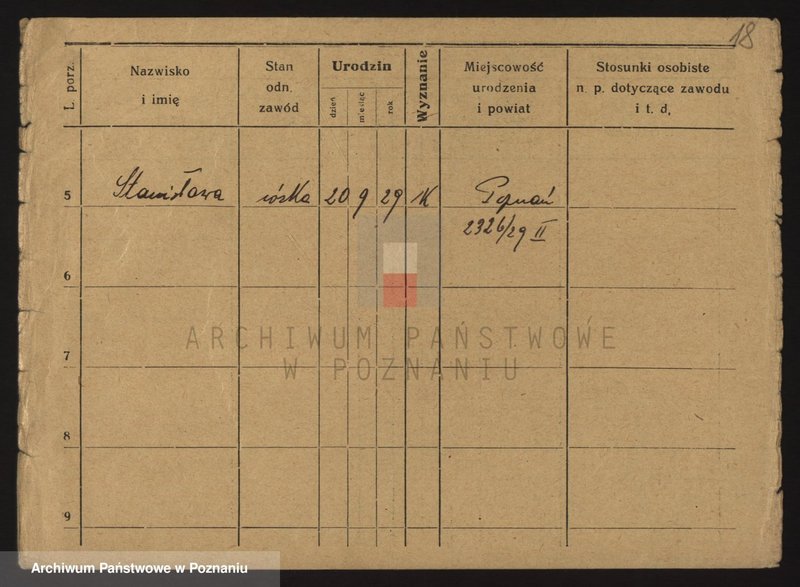 18
L. porz.
Nazwisko
i imię
Stan
odn.
zawód
Urodzin
dzień
miesiąc
rok
Wyznanie
Miejscowość
urodzenia
i powiat
Stosunki osobiste
n. p. dotyczące zawodu
i t. d.
5 Stanisława córka 20 9 29 rk Poznań
2326/29 II
6
7
8
9
ARCHIWUM PAŃSTWOWE
W POZNANIU
Archiwum Państwowe w Poznaniu